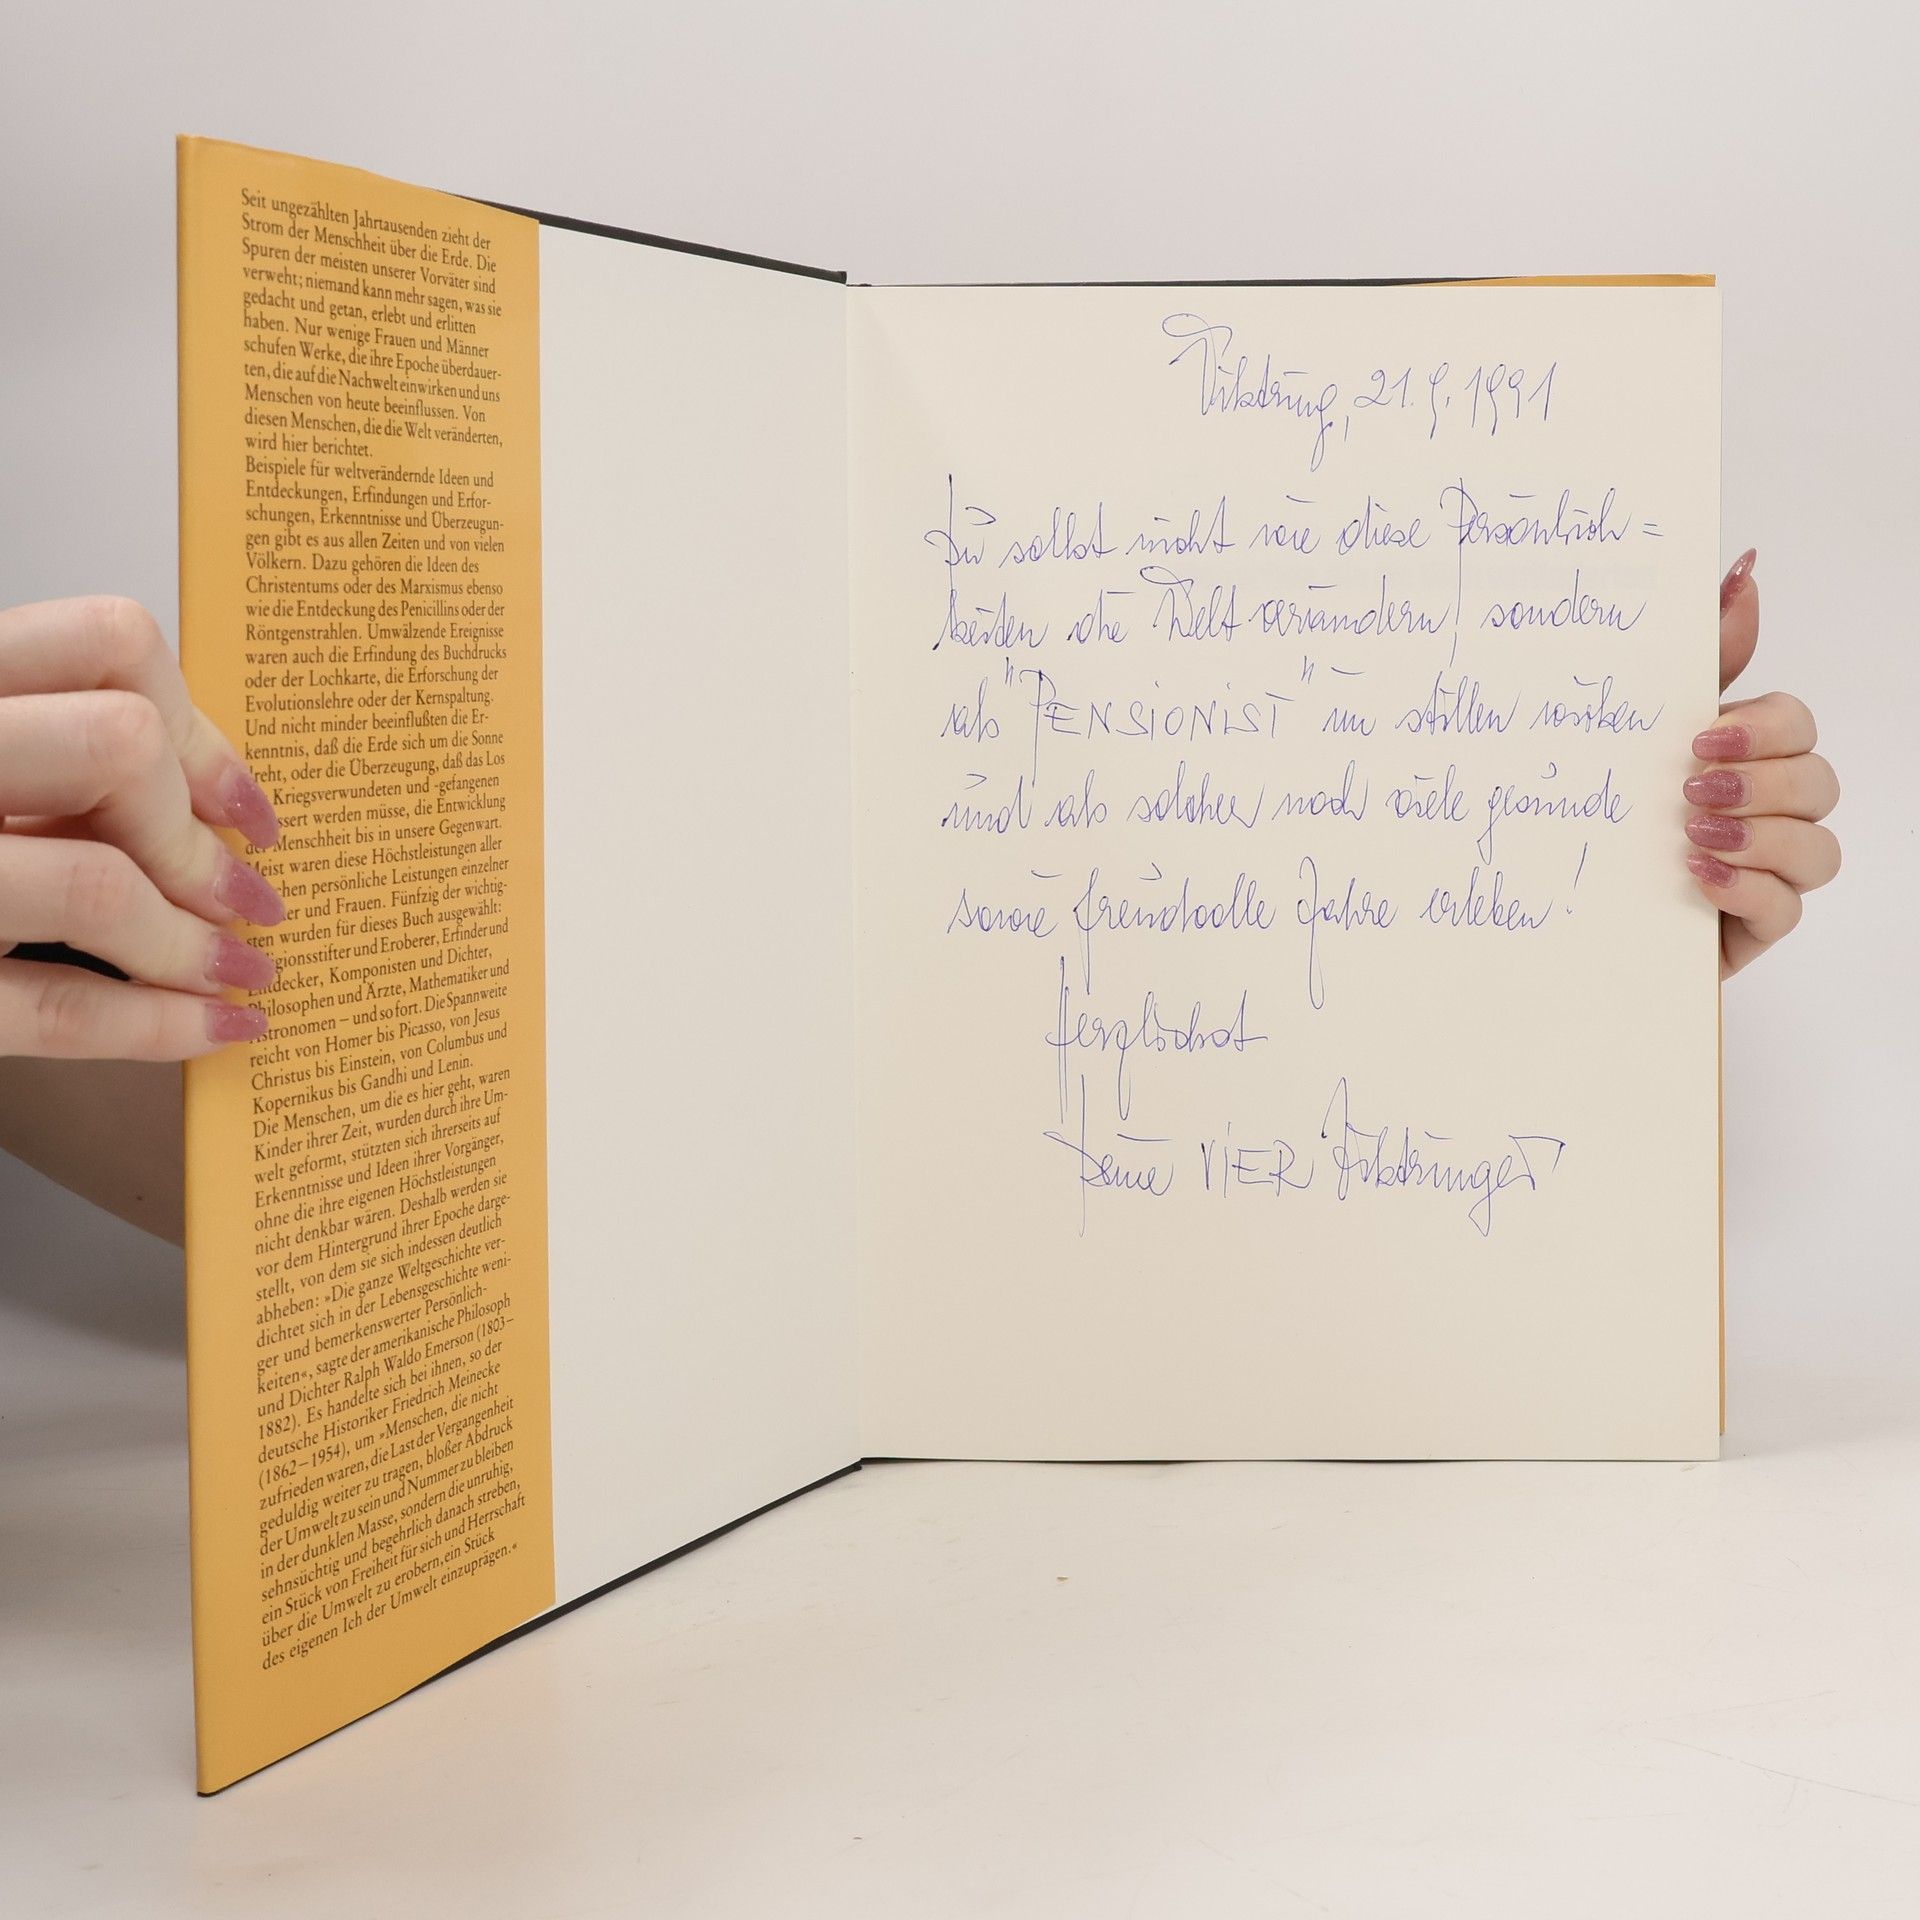 Seit ungezählten Jahrtausenden zieht der
Strom der Menschheit über die Erde. Die
Spuren der meisten unserer Vorväter sind
verweht; niemand kann mehr sagen, was sie
gedacht und getan, erlebt und erlitten
haben. Nur wenige Frauen und Männer
schufen Werke, die ihre Epoche überdauer-
ten, die auf die Nachwelt einwirken und uns
Menschen von heute beeinflussen. Von
diesen Menschen, die die Welt veränderten,
wird hier berichtet.
Beispiele für weltverändernde Ideen und
Entdeckungen, Erfindungen und Erfor-
schungen, Erkenntnisse und Überzeugun-
gen gibt es aus allen Zeiten und von vielen
Völkern. Dazu gehören die Ideen des
Christentums oder des Marxismus ebenso
wie die Entdeckung des Penicillins oder der
Röntgenstrahlen. Umwälzende Ereignisse
waren auch die Erfindung des Buchdrucks
oder der Lochkarte, die Erforschung der
Evolutionslehre oder der Kernspaltung.
Und nicht minder beeinflußten die Er-
kenntnis, daß die Erde sich um die Sonne
dreht, oder die Überzeugung, daß das Los
Kriegsverwundeten und -gefangenen
werden müsse, die Entwicklung
der Menschheit bis in unsere Gegenwart.
Meist waren diese Höchstleistungen aller
persönliche Leistungen einzelner
und Frauen. Fünfzig der wichtig-
sten wurden für dieses Buch ausgewählt:
Religionsstifter und Eroberer, Erfinder und
Entdecker, Komponisten und Dichter,
Philosophen und Ärzte, Mathematiker und
Astronomen – und so fort. Die Spannweite
reicht von Homer bis Picasso, von Jesus
Christus bis Einstein, von Columbus und
Kopernikus bis Gandhi und Lenin.
Die Menschen, um die es hier geht, waren
Kinder ihrer Zeit, wurden durch ihre Um-
welt geformt, stützten sich ihrerseits auf
Erkenntnisse und Ideen ihrer Vorgänger,
ohne die ihre eigenen Höchstleistungen
nicht denkbar wären. Deshalb werden sie
vor dem Hintergrund ihrer Epoche darge-
stellt, von dem sie sich indessen deutlich
abheben: »Die ganze Weltgeschichte ver-
dichtet sich in der Lebensgeschichte weni-
ger und bemerkenswerter Persönlich-
keiten«, sagte der amerikanische Philosoph
und Dichter Ralph Waldo Emerson (1803–
1882). Es handelte sich bei ihnen, so der
deutsche Historiker Friedrich Meinecke
(1862–1954), um »Menschen, die nicht
zufrieden waren, die Last der Vergangenheit
geduldig weiter zu tragen, bloßer Abdruck
der Umwelt zu sein und Nummer zu bleiben
in der dunklen Masse, sondern die unruhig,
sehnsüchtig und begehrlich danach streben,
ein Stück von Freiheit für sich und Herrschaft
über die Umwelt zu erobern, ein Stück
des eigenen Ich der Umwelt einzuprägen.«
Viktring, 21.9.1991
Du sollst nicht wie diese Persönlich=
keiten die Welt verändern, sondern
als "PENSIONIST" im stillen wirken
und als solcher noch viele gesunde
sowie freudvolle Jahre erleben!
Herzlichst
Deine VIER Viktringer